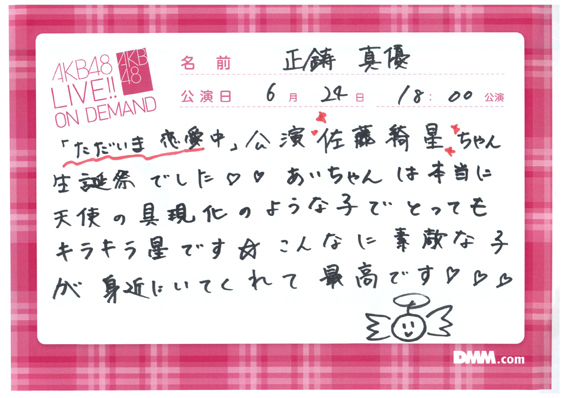 AKB48
LIVE!!
ON DEMAND
AKB
48
名前 正鋳 真優
公演日 6月 24日 18:00 公演
「ただいま 恋愛中」公演 佐藤綺星ちゃん
生誕祭でした♡♡ あいちゃんは本当に
天使の具現化のような子でとっても
キラキラ星です☆ こんなに素敵な子
が身近にいてくれて最高です♡♡♡
DMM.com